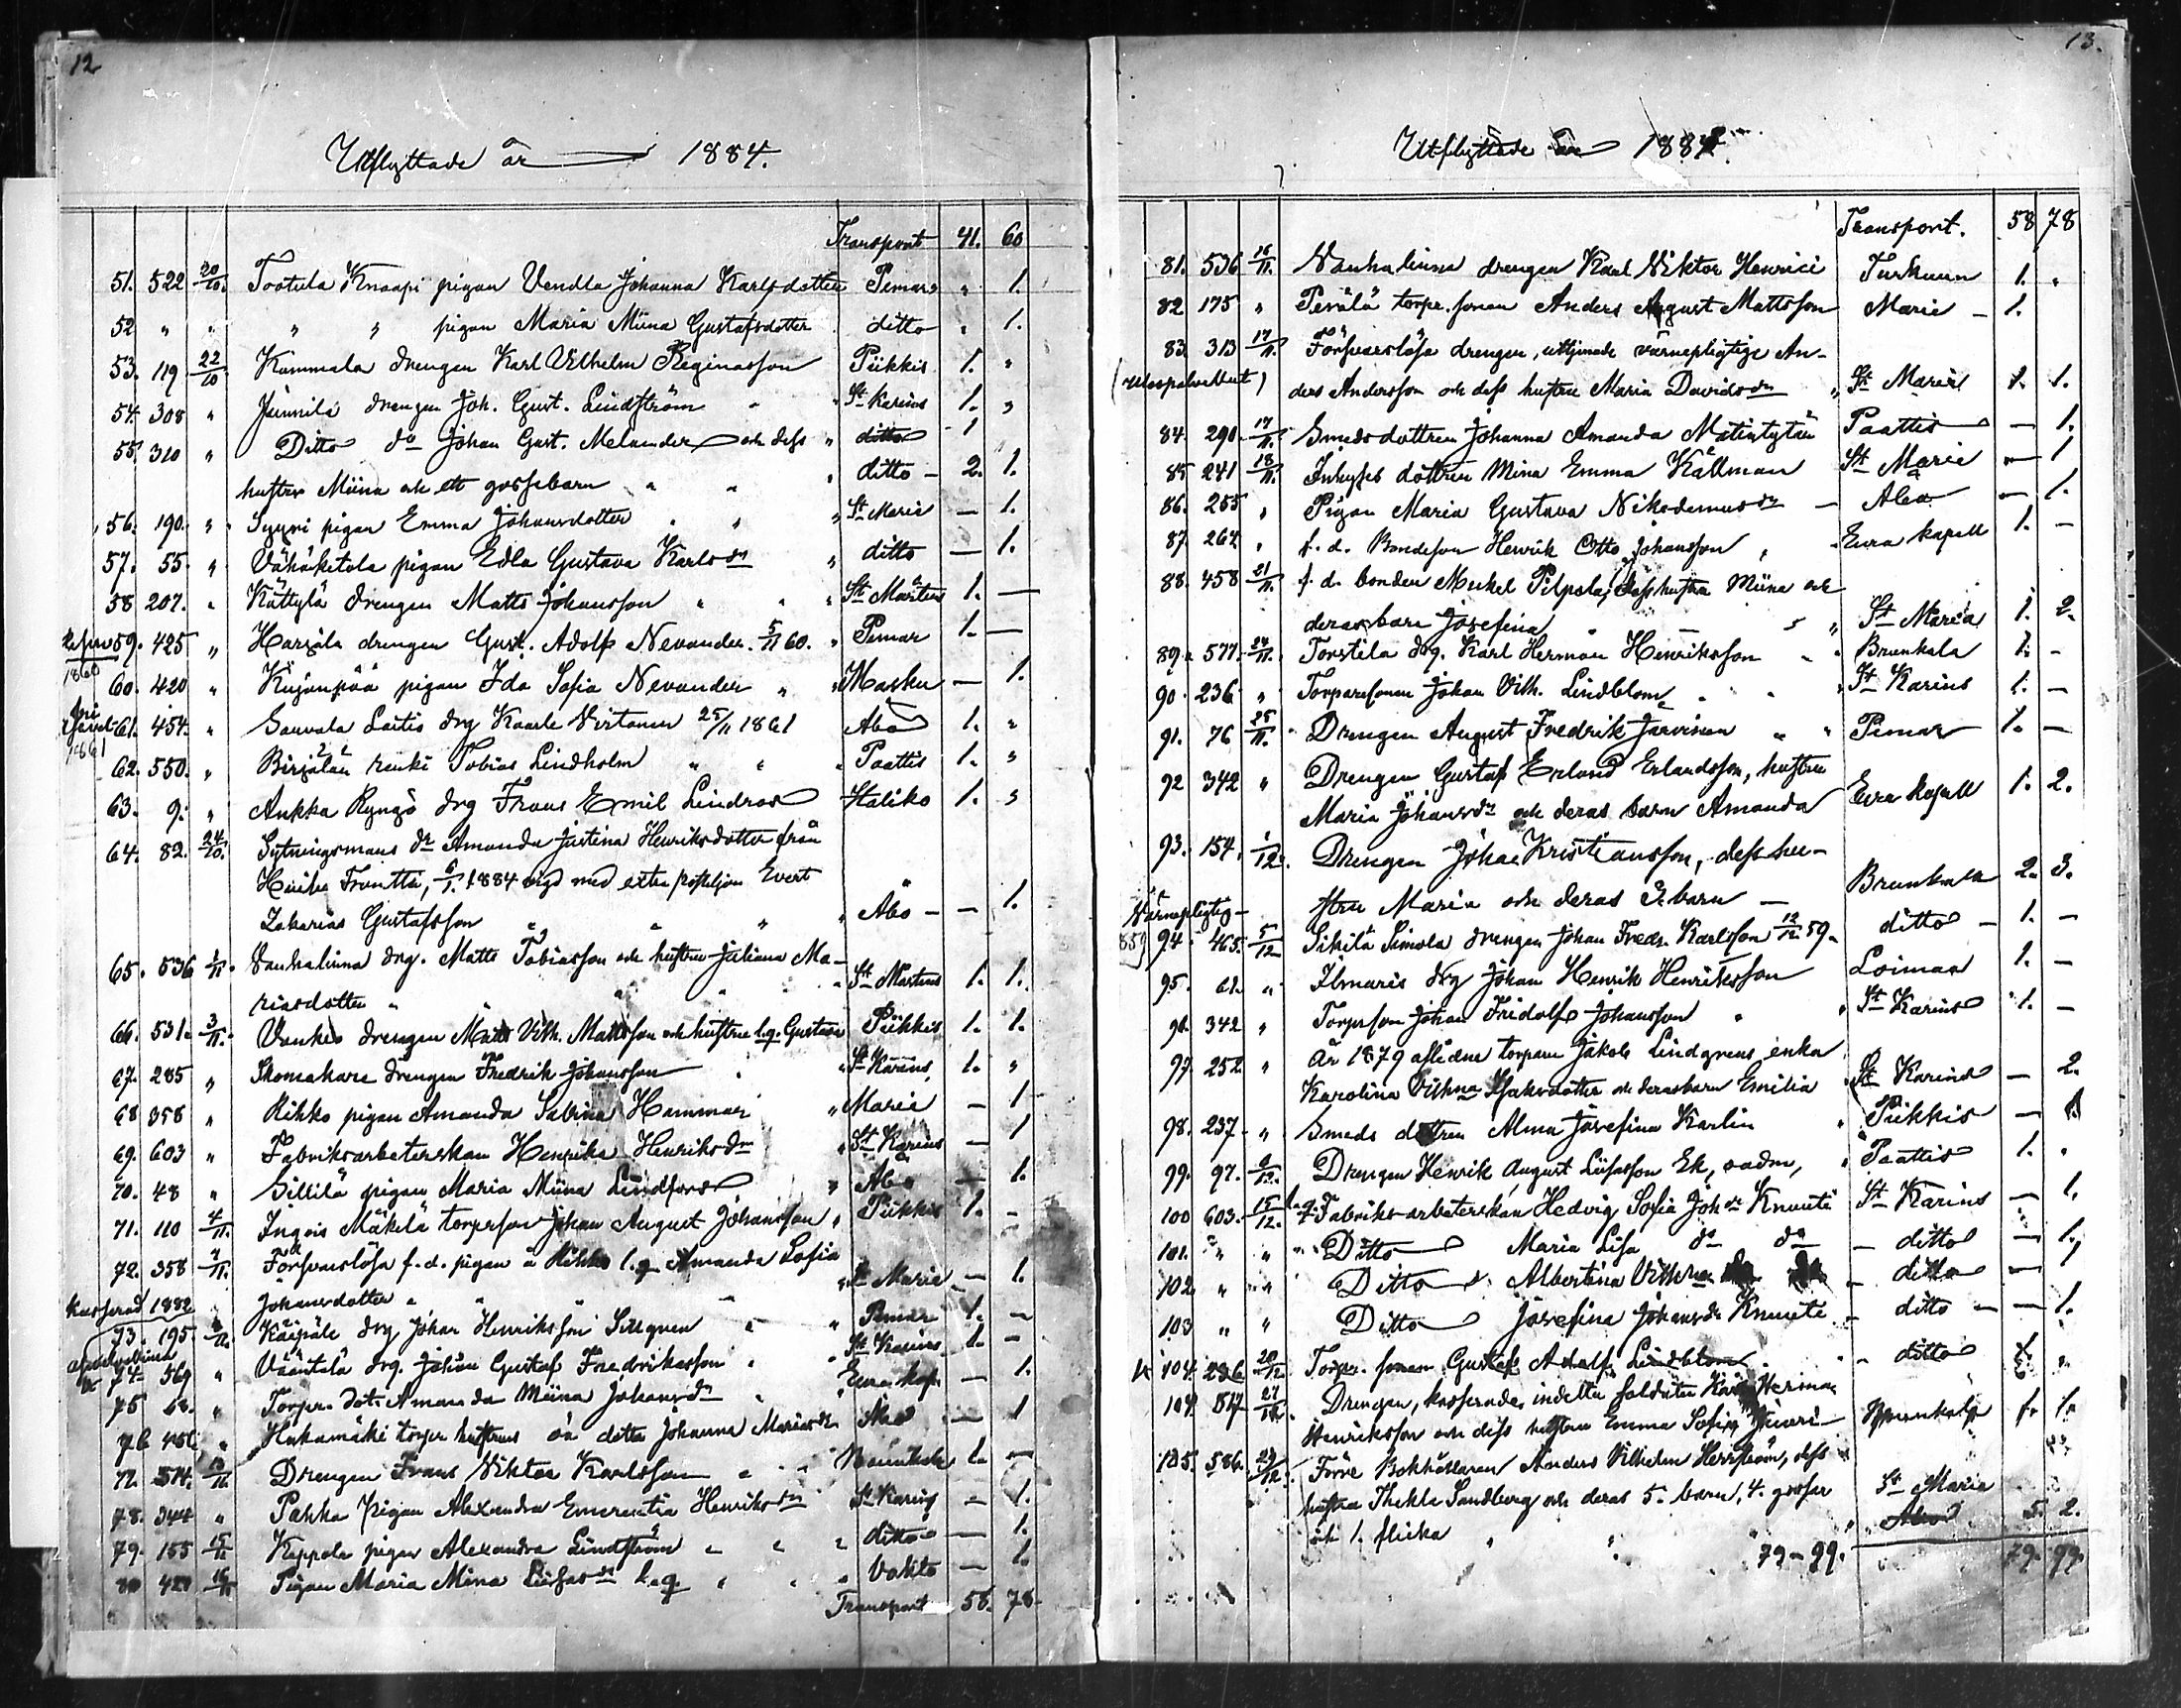 12
Utflyttade år 1884.
Transport 41. 60
51. 522 20/10. Tootula Knaapi pigan Vendla Johanna Karlsdotter Pemar " 1.
52 " " " " pigan Maria Miina Gustafsdotter ditto " 1.
53. 119 22/10 Kummala drengen Karl Wilhelm Reginasson Piikkis 1. "
54. 308 " drengen Joh. Gust. Lindström " St Karins 1. "
55. 310 " Ditto do Johan Gust. Melander och dess " ditto 1
hustru Miina och ett gossebarn " " " ditto - 2. 1.
56. 190. " pigan Emma Johansdotter " " St Marie — 1.
57. 55. " Vähäketola pigan Edla Gustava Karlsdr " ditto — 1.
58 207. " Kättylä drengen Matts Johansson " " St Mårtens 1. —
59. 425 " drengen Gust. Adolf Nevander. 5/11 60. " Pemar 1. —
1860
60. 420 " pigan Ida Sofia Nevander " " Masku — 1.
61. 454. " Sauvala Laitis drg Kaarle Virtanen 25/11 1861 Åbo 1. "
1861
62. 550. " renki Tobias Lindholm " " " Paattis 1. "
63. 9. " Ankka Ryngö drg Frans Emil Lindros Haliko 1. "
64. 82. 24/10. Sytningsmans dr Amanda Justina Henriksdotter från
6/1. 1884 vigd med extra postiljon Evert
Zakarias Gustafsson " " " Åbo — — 1.
65. 536 1/11. Vanhalinna drg. Matts Tobiasson och hustrun Juliana Ma-
riasdotter " " " " St Mårtens 1. 1.
66. 531. 3/11. drengen Matts Vilh. Mattsson och hustrun h.g. Gustava Piikkis 1. 1.
67. 285 " Skomakare drengen Fredrik Johansson " St Karins 1. "
68 358 " Rihko pigan Amanda Sabina Hammar " Marie — 1
69. 603 " Fabriksarbeterskan Henrika Henriksdr " St Karins — 1
70. 48 " Sillilä pigan Maria Miina Lindfors " Åbo — 1.
71. 110 4/11. Ingois Mäkilä torperson Johan August Johansson " Piikkis 1. -
72. 358 7/11. Försvarslösa f.d. pigan å Rihko l.g. Amanda Sofia
Johansdotter " " " St Marie — 1.
kasserad 1882
73. 195. drg Johan Henriksson " Pemar 1. —
74. 569 " Vääntelä drg. Johan Gustaf Fredriksson " St Karins 1. -
75 63. " Torpr. dotr Amanda Miina Johansdr " Eura kap. — 1.
76 451 " Hakamäki torpr hustruns oä dotter Johanna Mariasdr Åbo — 1
77. 574. Drengen Frans Viktor Karlsson " " Brunkala 1. —
78. 344 " Pahka pigan Alexandra Emerentia Henriksdr St Karins — 1.
79. 155 15/11 Keppola pigan Alexandra Lindström " " " ditto — 1.
80 420 15/11 Pigan Maria Mina h.g. " " Vahto — 1.
Transport 58. 78
13.
Utflyttade år 1884.
Transport. 58 78
81. 536 16/11. Vanhalinna drengen Karl Viktor Henrici 1. "
82 175 " Perälä torpr. sonen Anders August Mattsson Marie — 1.
83. 313 17/11. Försvarslöse drengen, uttjenade värnepligtige An-
ders Andersson och dess hustru Maria Davidsdr " St Marie 1. 1.
84. 290. 17/11. Smedsdottren Johanna Amanda Paattis — 1.
85 241 18/11. Inhyses dottren Mina Emma Källman St Marie — 1
86. 255 " Pigan Maria Gustava Nikodemusdr — Åbo — 1.
87. 264 " f.d. Bondeson Henrik Otto Johansson " Eura kapell 1. —
88. 458 21/11. f.d. bonden Mickel Pilpola, dess hustru Miina och
deras barn Josefina " — " St Maria 1. 2.
89. 577. 24/11. Torstila drg. Karl Herman Henriksson " " Brunkala 1. -
90. 236 " Torparesonen Johan Vilh. Lindblom " " St Karins 1. —
91. 76 25/11. Drengen August Fredrik Järvinen " " Pemar 1. —
92 342 " Drengen Gustaf Erland Erlandsson, hustru
Maria Johansdr och deras barn Amanda Eura kapell 1. 2.
93. 154. 1/12. Drengen Johan Kristiansson, dess hu-
stru Maria och deras 3. barn — Brunkala 2. 3.
Värnepligtig
859 94. 465. 5/12 Sikilä Simola drengen Johan Fredr. Karlsson 12/12 59. ditto — 1. —
95. 61. " Ilmaris drg Johan Henrik Henriksson Loimaa 1. —
96. 342 " Torperson Johan Fridolf Johansson " " St Karins 1. —
97. 252 " År 1879 aflidne torparen Jakob Lindgrens enka
Karolina Isaksdotter och deras barn Emilia St Karins — 2.
98. 237. " Smeds dottren Alma Josefina Karlin " Piikkis — 1.
99. 97. Drengen Henrik August Ek, " Paattis 1. "
100 603. 15/12. Fabriks-arbeterskan Hedvig Sofia Johdr Knuuti St Karins — 1.
101. " " " Ditto Maria Lisa do do — ditto — 1.
102 " " Ditto Albertina — ditto — 1
103 " " Ditto Josefina Johansdr Knuuti — ditto — — 1.
104. 236 20/12 Torpr. sonen Gustaf Adolf Lindblom " ditto 1. "
104. 27/12. Drengen, kasserade indelta soldaten Karl Herman
Henriksson och dess hustru Emma Sofia Brunkala 1. 1.
105. 586. 29/12. Förre Bokhållaren Anders Vilhelm dess
hustru Thekla Sandberg och deras 5. barn, 4. gossar St Marie
och 1. flicka " " " Åbo 5. 2.
79-99. 79. 99.